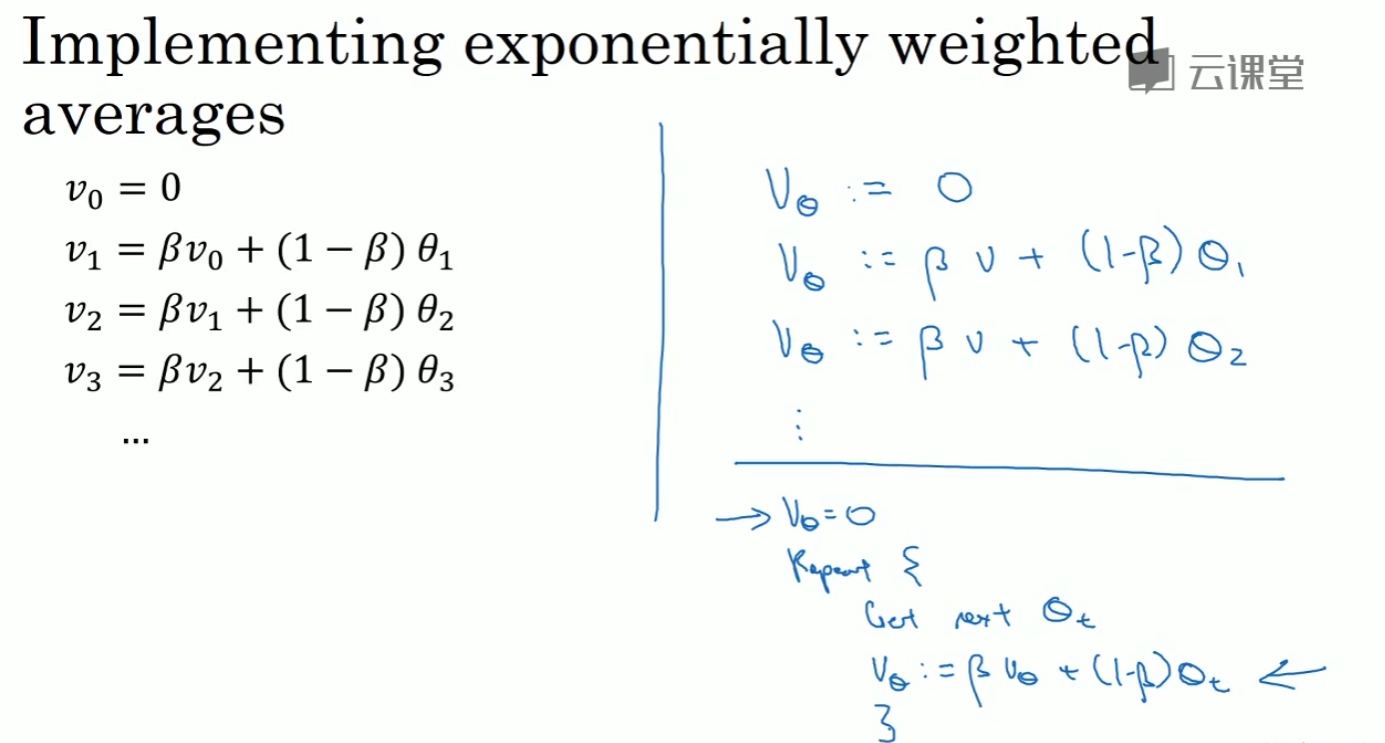 Implementing exponentially weighted
averages
云课堂
v₀ = 0
v₁ = βv₀ + (1 − β) θ₁
v₂ = βv₁ + (1 − β) θ₂
v₃ = βv₂ + (1 − β) θ₃
...
V_θ := 0
V_θ := β v + (1-β) θ₁
V_θ := β v + (1-β) θ₂
⋮
→ V_θ = 0
Repeat {
Get next θ_t
V_θ := β V_θ + (1-β) θ_t ←
}